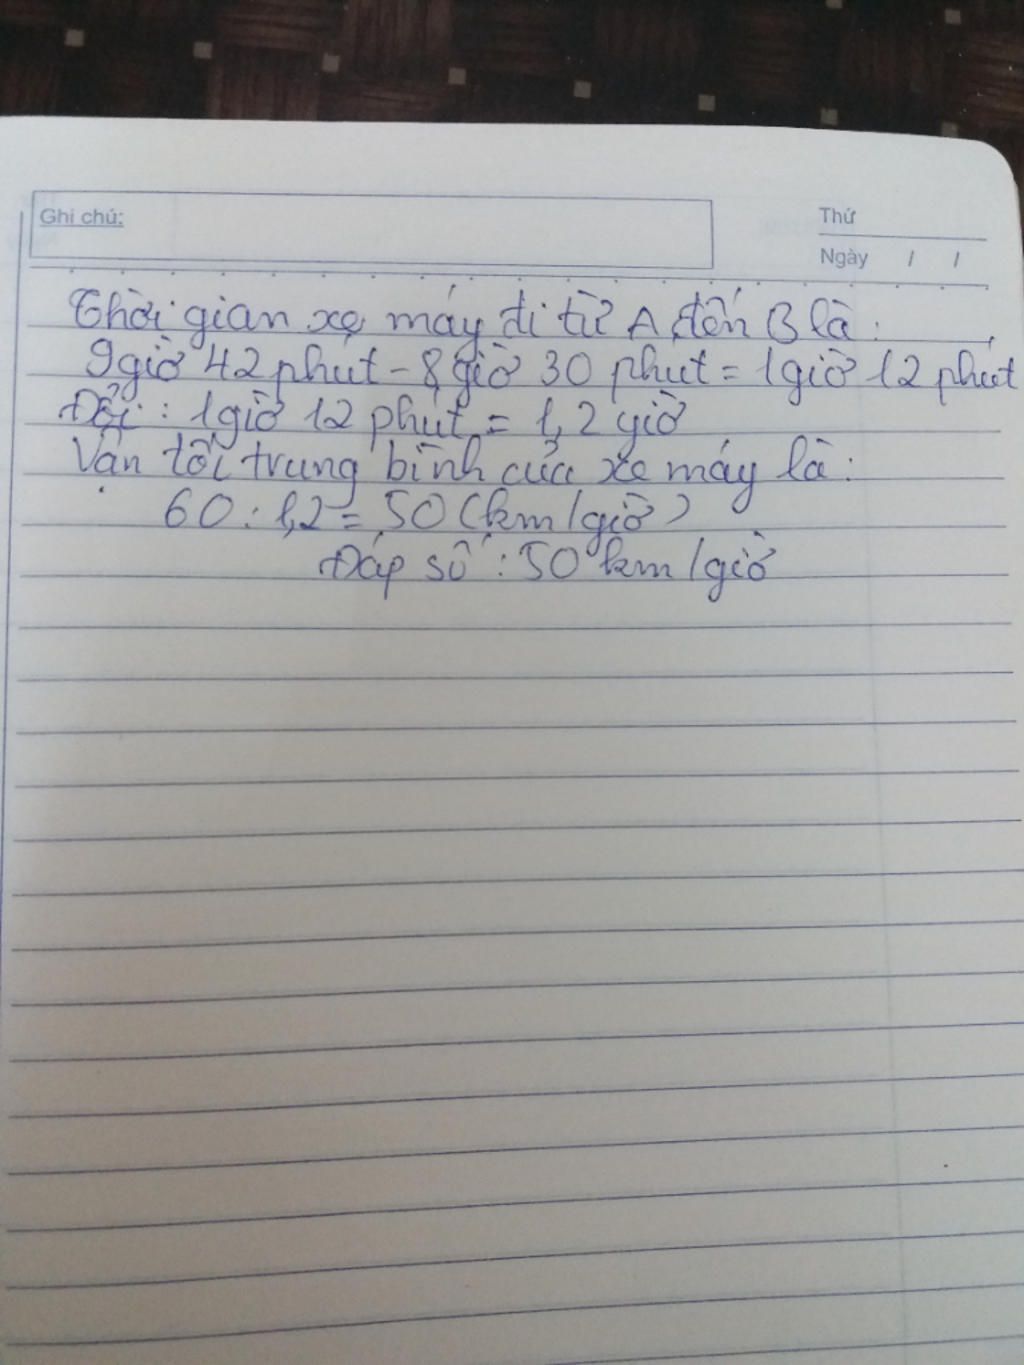 Ghi chú:
Thứ
Ngày / /
Thời gian xe máy đi từ A đến B là:
9giờ 42 phút - 8 giờ 30 phút = 1giờ 12 phút
Đổi: 1giờ 12 phút = 1,2 giờ
Vận tốc trung bình của xe máy là:
60 : 1,2 = 50 (km/giờ)
Đáp số: 50 km/giờ